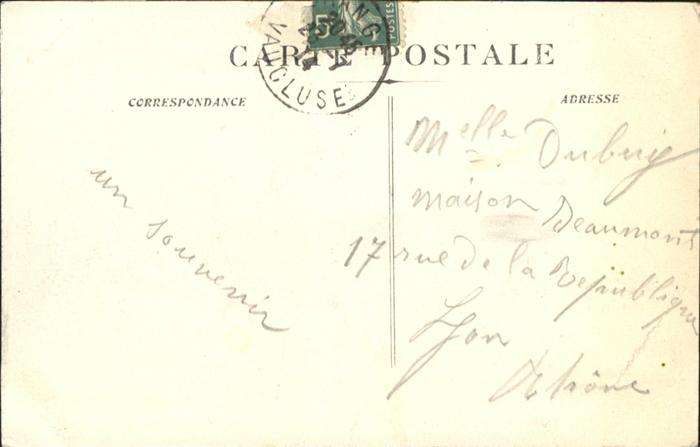 CARTE POSTALE
5c
POSTES
VAUCLUSE
CORRESPONDANCE
ADRESSE
un souvenir
Melle
maison Beaumont
17 rue de la République
Lyon
Rhône